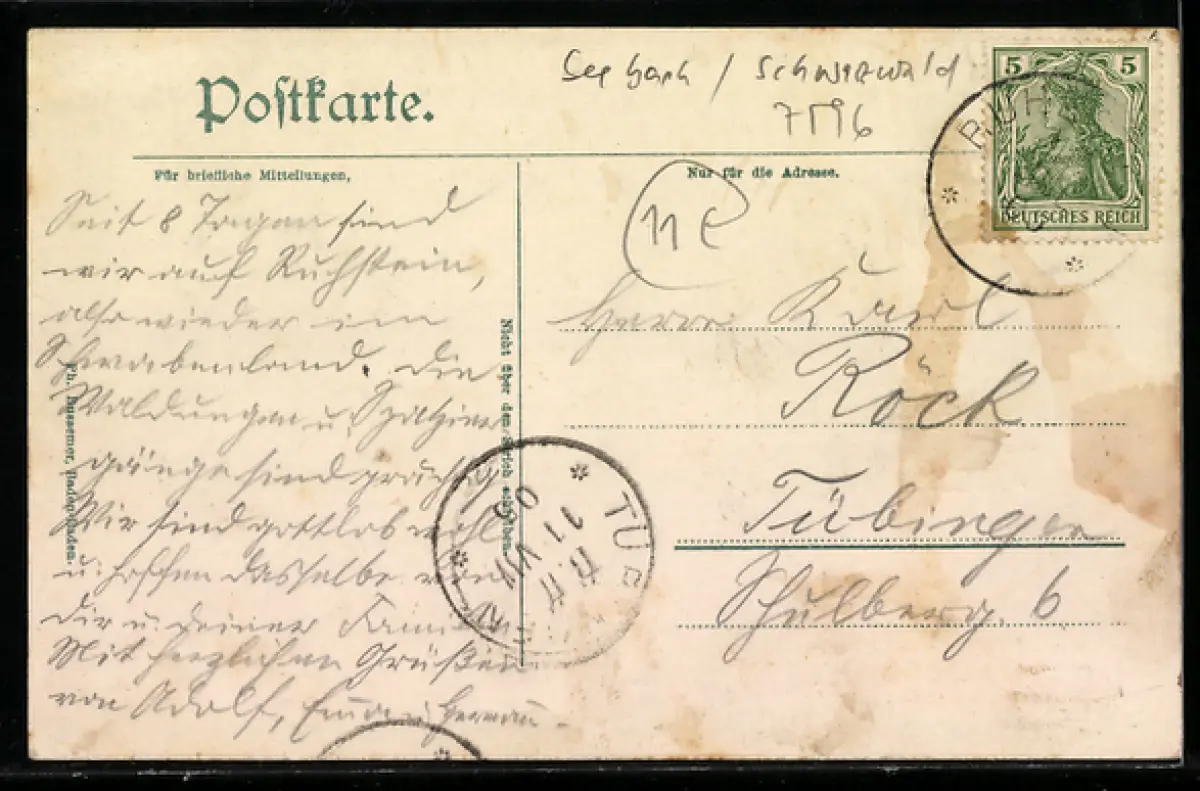 Postkarte.
Seebach / Schwarzwald
7596
5 5
DEUTSCHES REICH
Für briefliche Mitteilungen,
Nur für die Adresse.
11 E
Seit 8 Tagen sind
wir auf Ruhstein,
also wieder im
Schwabenland. Die
Waldungen u. Spazier
gänge sind prächtig
Wir sind gottlob wohl
u. hoffen dasselbe von
dir u. deiner Familie
Mit herzlichen Grüßen
von Adolf, Emma u. Herman.
Ph. Bussemer, Baden-Baden.
Nicht über den Strich schreiben.
Herrn Karl
Röck
Tübingen
Schulberg. 6
RUH
TÜB
11 VII
09